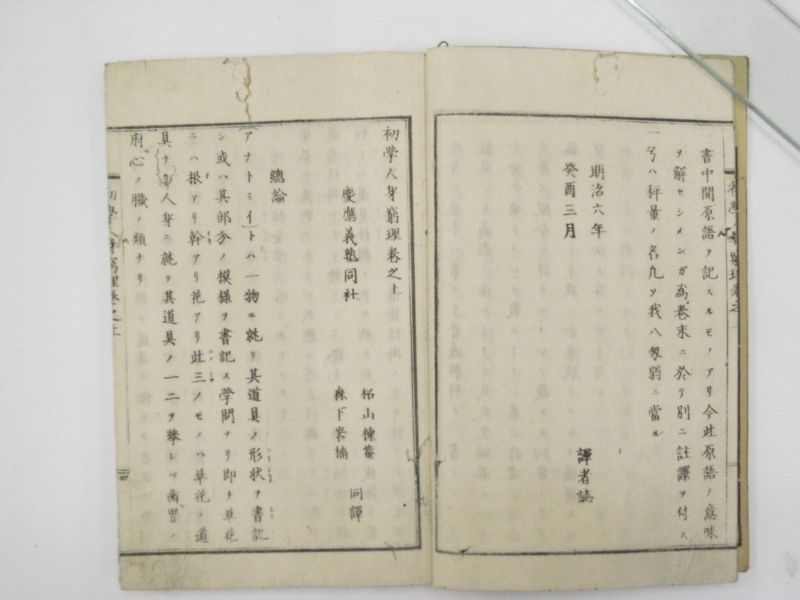 一書中間原語ヲ記スルモノアリ今此原語ノ意味
ヲ解セシメンガ為巻末ニ於テ別ニ註譯ヲ付ス
一ハ秤量ノ名九ソ我八匁弱ニ當ル
明治六年
癸酉三月
譯者誌
初學人身窮理巻之上
慶應義塾同社
松山棟菴
森下岩楠
同譯
總論
アナトミイトハ一物ニ就テ其道具ノ形状ヲ書記
シ或ハ其部分ノ模様ヲ書記ス學問ナリ即チ草花
ニハ根アリ幹アリ花アリ此三ノモノハ草花ノ道
具ナリ人身ニ就テ其道具ノ一二ヲ擧レバ歯胃
府心ノ臓ノ類ナリ
初學人身窮理巻之上